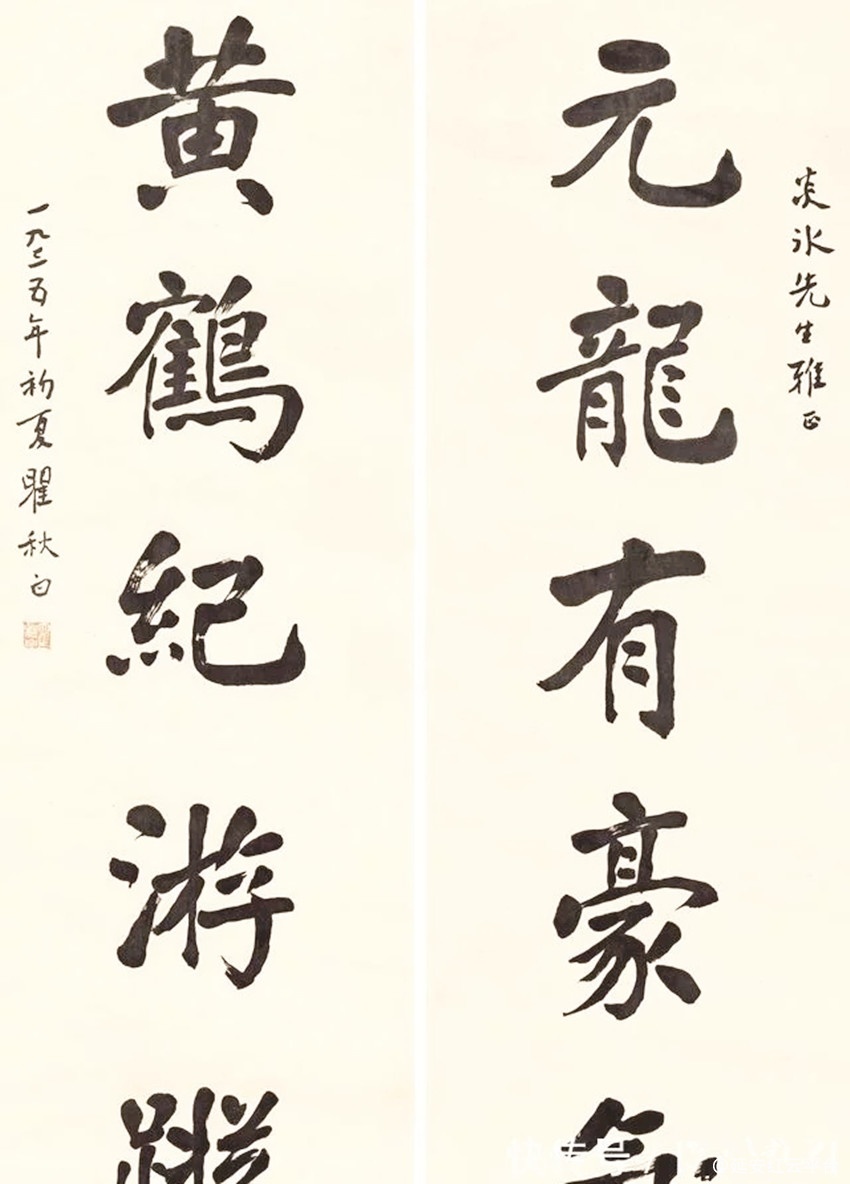 炎冰先生雅正
元龍有豪氣
黄鶴紀游蹤
一九二五年初夏瞿秋白